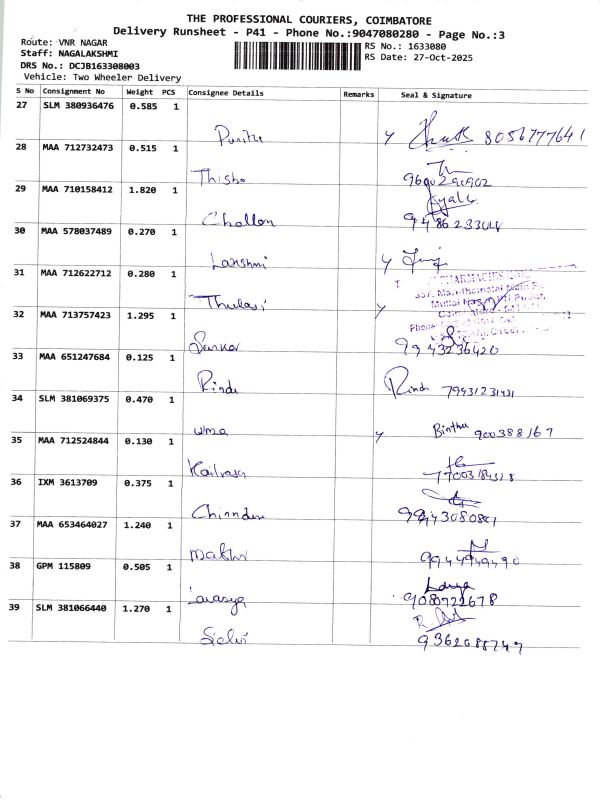 THE PROFESSIONAL COURIERS, COIMBATORE
Delivery Runsheet - P41 - Phone No.:9047080280 - Page No.:3
Route: VNR NAGAR
RS No.: 1633080
Staff: NAGALAKSHMI
RS Date: 27-Oct-2025
DRS No.: DCJB163308003
Vehicle: Two Wheeler Delivery
S No Consignment No Weight PCS Consignee Details Remarks Seal & Signature
27 SLM 380936476 0.585 1
8056777641
28 MAA 712732473 0.515 1
Thisho
29 MAA 710158412 1.820 1
30 MAA 578037489 0.270 1
Lakshmi
31 MAA 712622712 0.280 1
Thulasi
32 MAA 713757423 1.295 1
9943236420
33 MAA 651247684 0.125 1
Rindu Rindu 79931231431
34 SLM 381069375 0.470 1
uma Binthu 900388167
35 MAA 712524844 0.130 1
36 IXM 3613709 0.375 1
37 MAA 653464027 1.240 1
9944949490
38 GPM 115809 0.505 1
9080722678
39 SLM 381066440 1.270 1
Selvi 9362088749